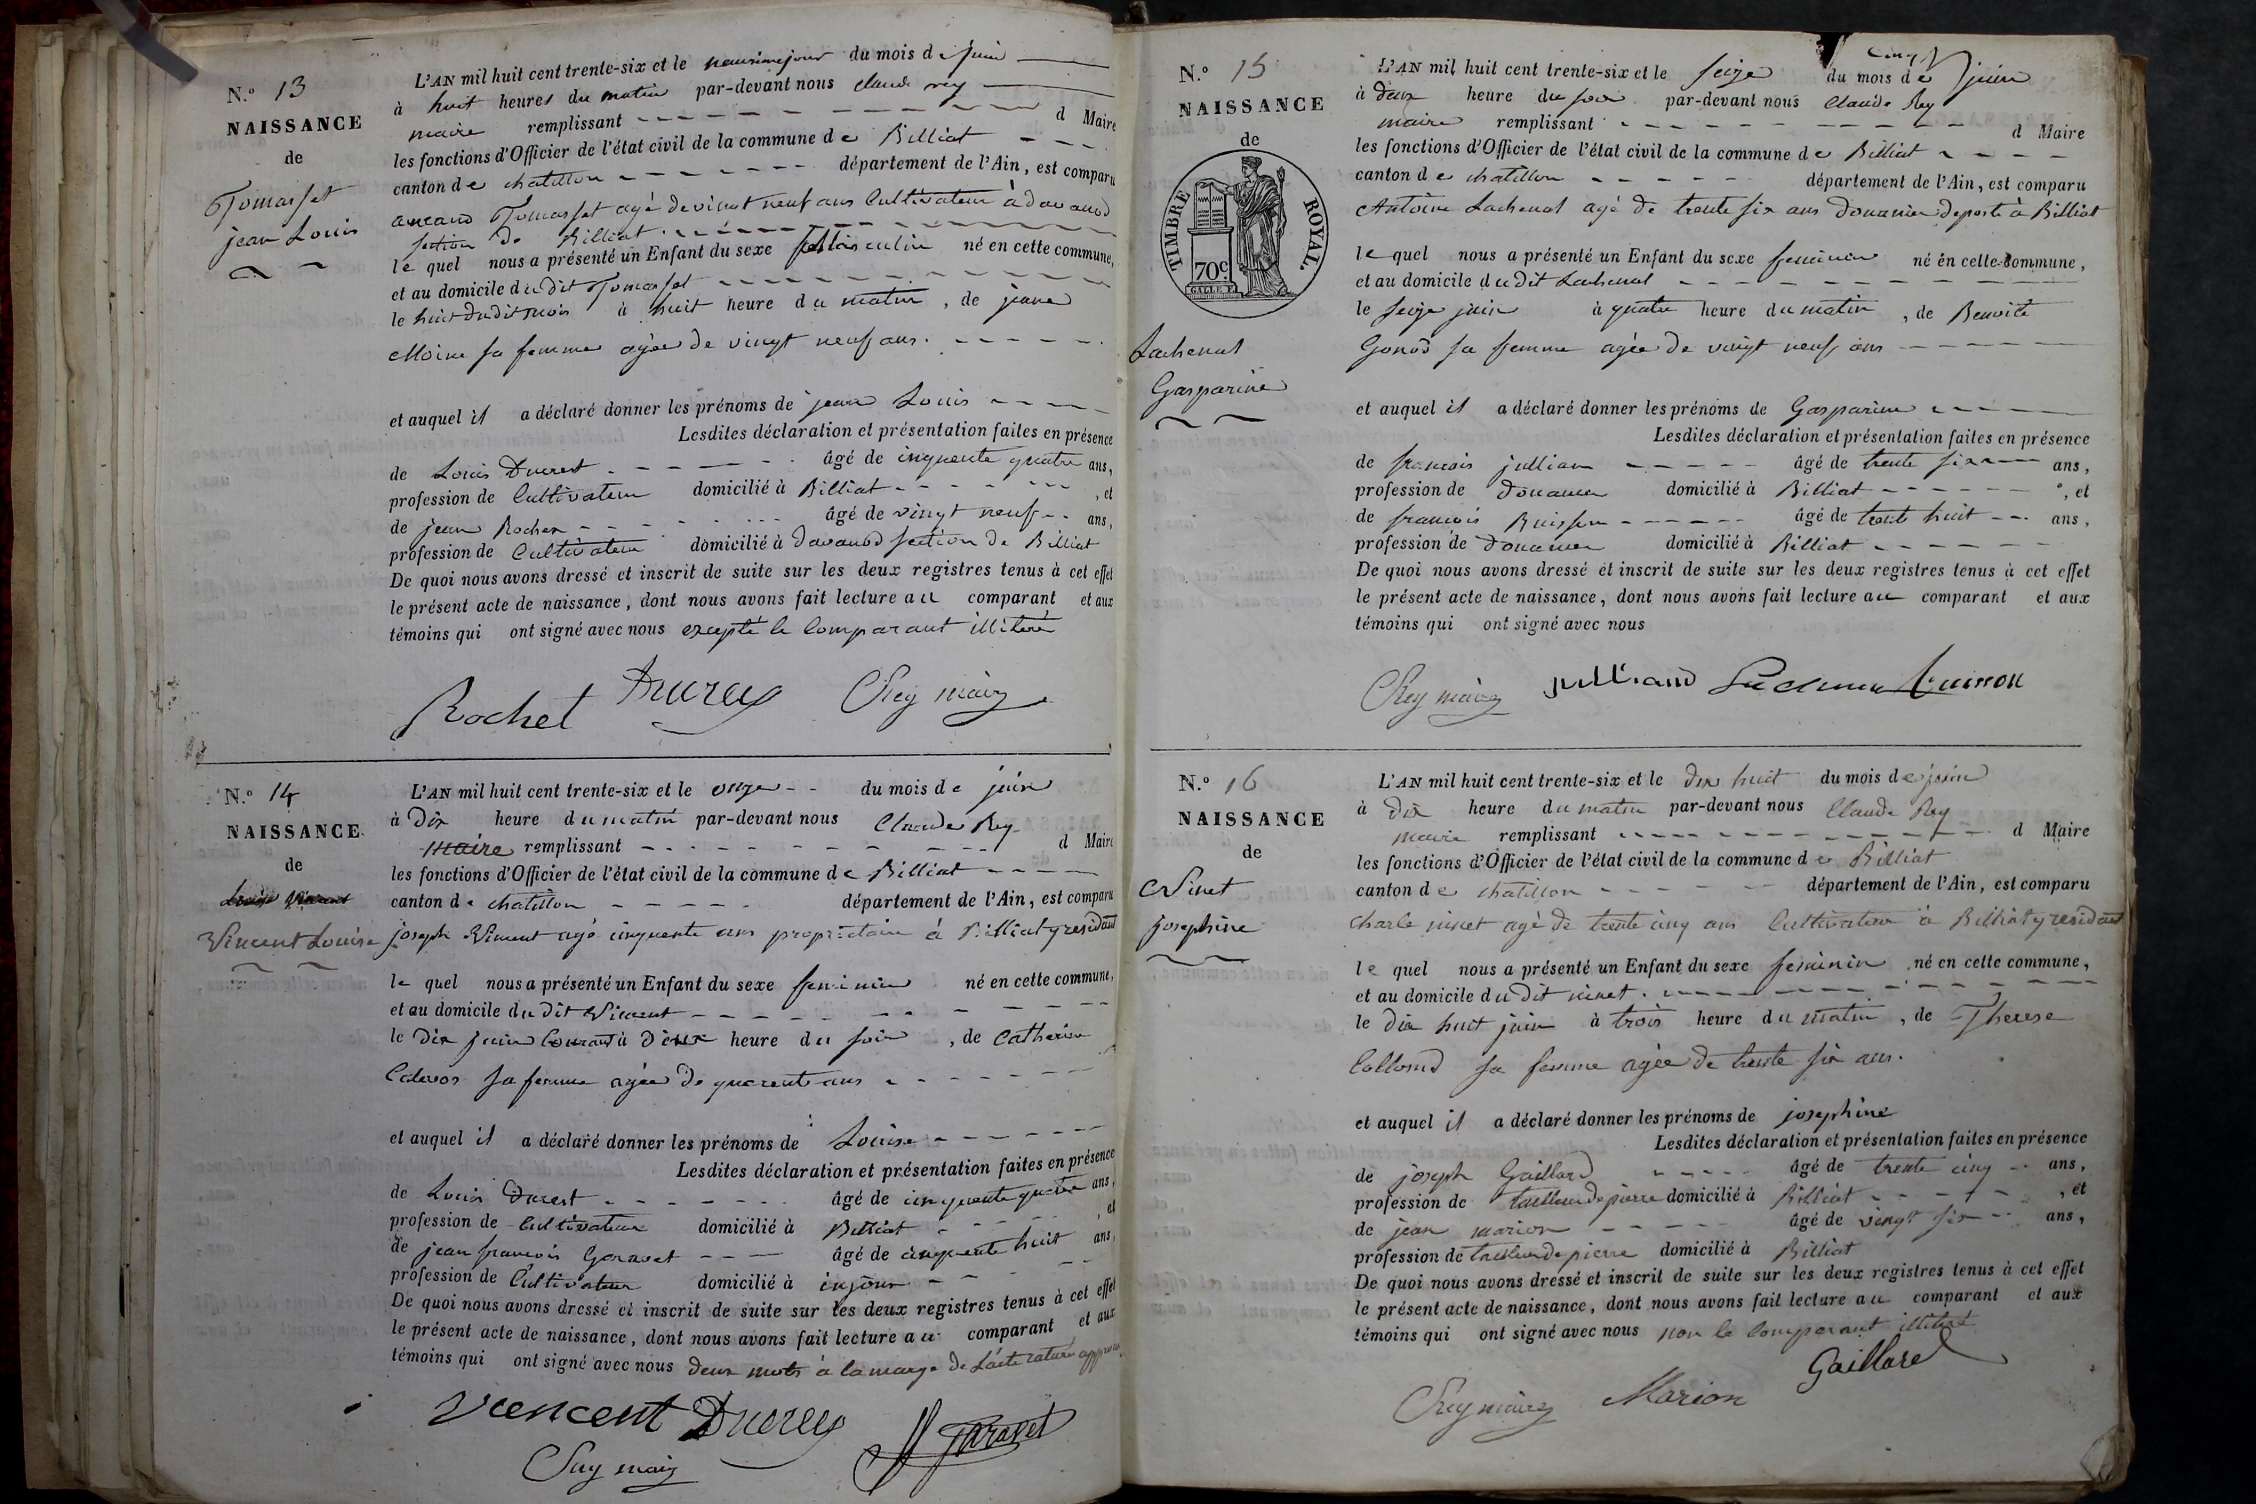 N.º 13
NAISSANCE
de
Tomasset
jean Louis
L'AN mil huit cent trente-six et le neuvieme jour du mois de juin
à huit heures du matin par-devant nous claude rey
maire remplissant d Maire
les fonctions d'Officier de l'état civil de la commune de Billiat
canton de chatillon département de l'Ain, est comparu
Tomasset agé de vingt neuf ans Cultivateur à davanod
section de Billiat
le quel nous a présenté un Enfant du sexe masculin né en cette commune,
et au domicile du dit Tomasset
le huit dudit mois à huit heure du matin, de jeane
Moine sa femme agée de vingt neuf ans.
et auquel il a déclaré donner les prénoms de jean Louis
Lesdites déclaration et présentation faites en présence
de Louis Ducret âgé de cinquente quatre ans,
profession de Cultivateur domicilié à Billiat, et
de jean Rochet âgé de vingt neuf ans,
profession de Cultivateur domicilié à davanod section de Billiat
De quoi nous avons dressé et inscrit de suite sur les deux registres tenus à cet effet
le présent acte de naissance, dont nous avons fait lecture au comparant et aux
témoins qui ont signé avec nous excepté le Comparant illiteré
Rochet Ducret Rey maire
N.º 14
NAISSANCE
de
Louise Vincent
Vincent Louise
L'AN mil huit cent trente-six et le onze du mois de juin
à dix heure du matin par-devant nous Claude Rey
maire remplissant d Maire
les fonctions d'Officier de l'état civil de la commune de Billiat
canton de chatillon département de l'Ain, est comparu
joseph Vincent agé cinquente ans propriétaire à Billiat y residant
le quel nous a présenté un Enfant du sexe feminin né en cette commune,
et au domicile du dit Vincent
le dix juin Courant à deux heure du soir, de Catherine
sa femme agée de quarente ans
et auquel il a déclaré donner les prénoms de Louise
Lesdites déclaration et présentation faites en présence
de Louis Ducret âgé de cinquente quatre ans,
profession de Cultivateur domicilié à Billiat, et
de jean francois Goravet âgé de cinquente huit ans,
profession de Cultivateur domicilié à injoux
De quoi nous avons dressé et inscrit de suite sur les deux registres tenus à cet effet
le présent acte de naissance, dont nous avons fait lecture au comparant et aux
témoins qui ont signé avec nous deux mots à la marge de l'acte raturé
Vencent Ducret Garavet
Rey maire
N.º 15
NAISSANCE
de
TIMBRE ROYAL.
70c.
Lachenal
Gasparine
L'AN mil huit cent trente-six et le seize du mois de juin
à deux heure du soir par-devant nous Claude Rey
maire remplissant d Maire
les fonctions d'Officier de l'état civil de la commune de Billiat
canton de chatillon département de l'Ain, est comparu
Antoine Lachenal agé de trente six ans douanier deposté à Billiat
le quel nous a présenté un Enfant du sexe feminin né en cette commune,
et au domicile du dit Lachenal
le seize juin à quatre heure du matin, de Benoite
Gonod sa femme agée de vingt neuf ans
et auquel il a déclaré donner les prénoms de Gasparine
Lesdites déclaration et présentation faites en présence
de francois jullian âgé de trente six ans,
profession de douanier domicilié à Billiat, et
de francois Buisson âgé de trente huit ans,
profession de douanier domicilié à Billiat
De quoi nous avons dressé et inscrit de suite sur les deux registres tenus à cet effet
le présent acte de naissance, dont nous avons fait lecture au comparant et aux
témoins qui ont signé avec nous
Rey maire julliand
N.º 16
NAISSANCE
de
Ninet
josephine
L'AN mil huit cent trente-six et le dix huit du mois de juin
à dix heure du matin par-devant nous Claude Rey
maire remplissant d Maire
les fonctions d'Officier de l'état civil de la commune de Billiat
canton de chatillon département de l'Ain, est comparu
Charle ninet agé de trente cinq ans Cultivateur à Billiat y residant
le quel nous a présenté un Enfant du sexe feminin né en cette commune,
et au domicile du dit ninet.
le dix huit juin à trois heure du matin, de Therese
Collomd sa femme agée de trente six ans.
et auquel il a déclaré donner les prénoms de josephine
Lesdites déclaration et présentation faites en présence
de joseph Gaillard âgé de trente cinq ans,
profession de tailleur de pierre domicilié à Billiat, et
de jean marion âgé de vingt six ans,
profession de tailleur de pierre domicilié à Billiat
De quoi nous avons dressé et inscrit de suite sur les deux registres tenus à cet effet
le présent acte de naissance, dont nous avons fait lecture au comparant et aux
témoins qui ont signé avec nous non le Comparant illiteré
Gaillard
Rey maire Marion